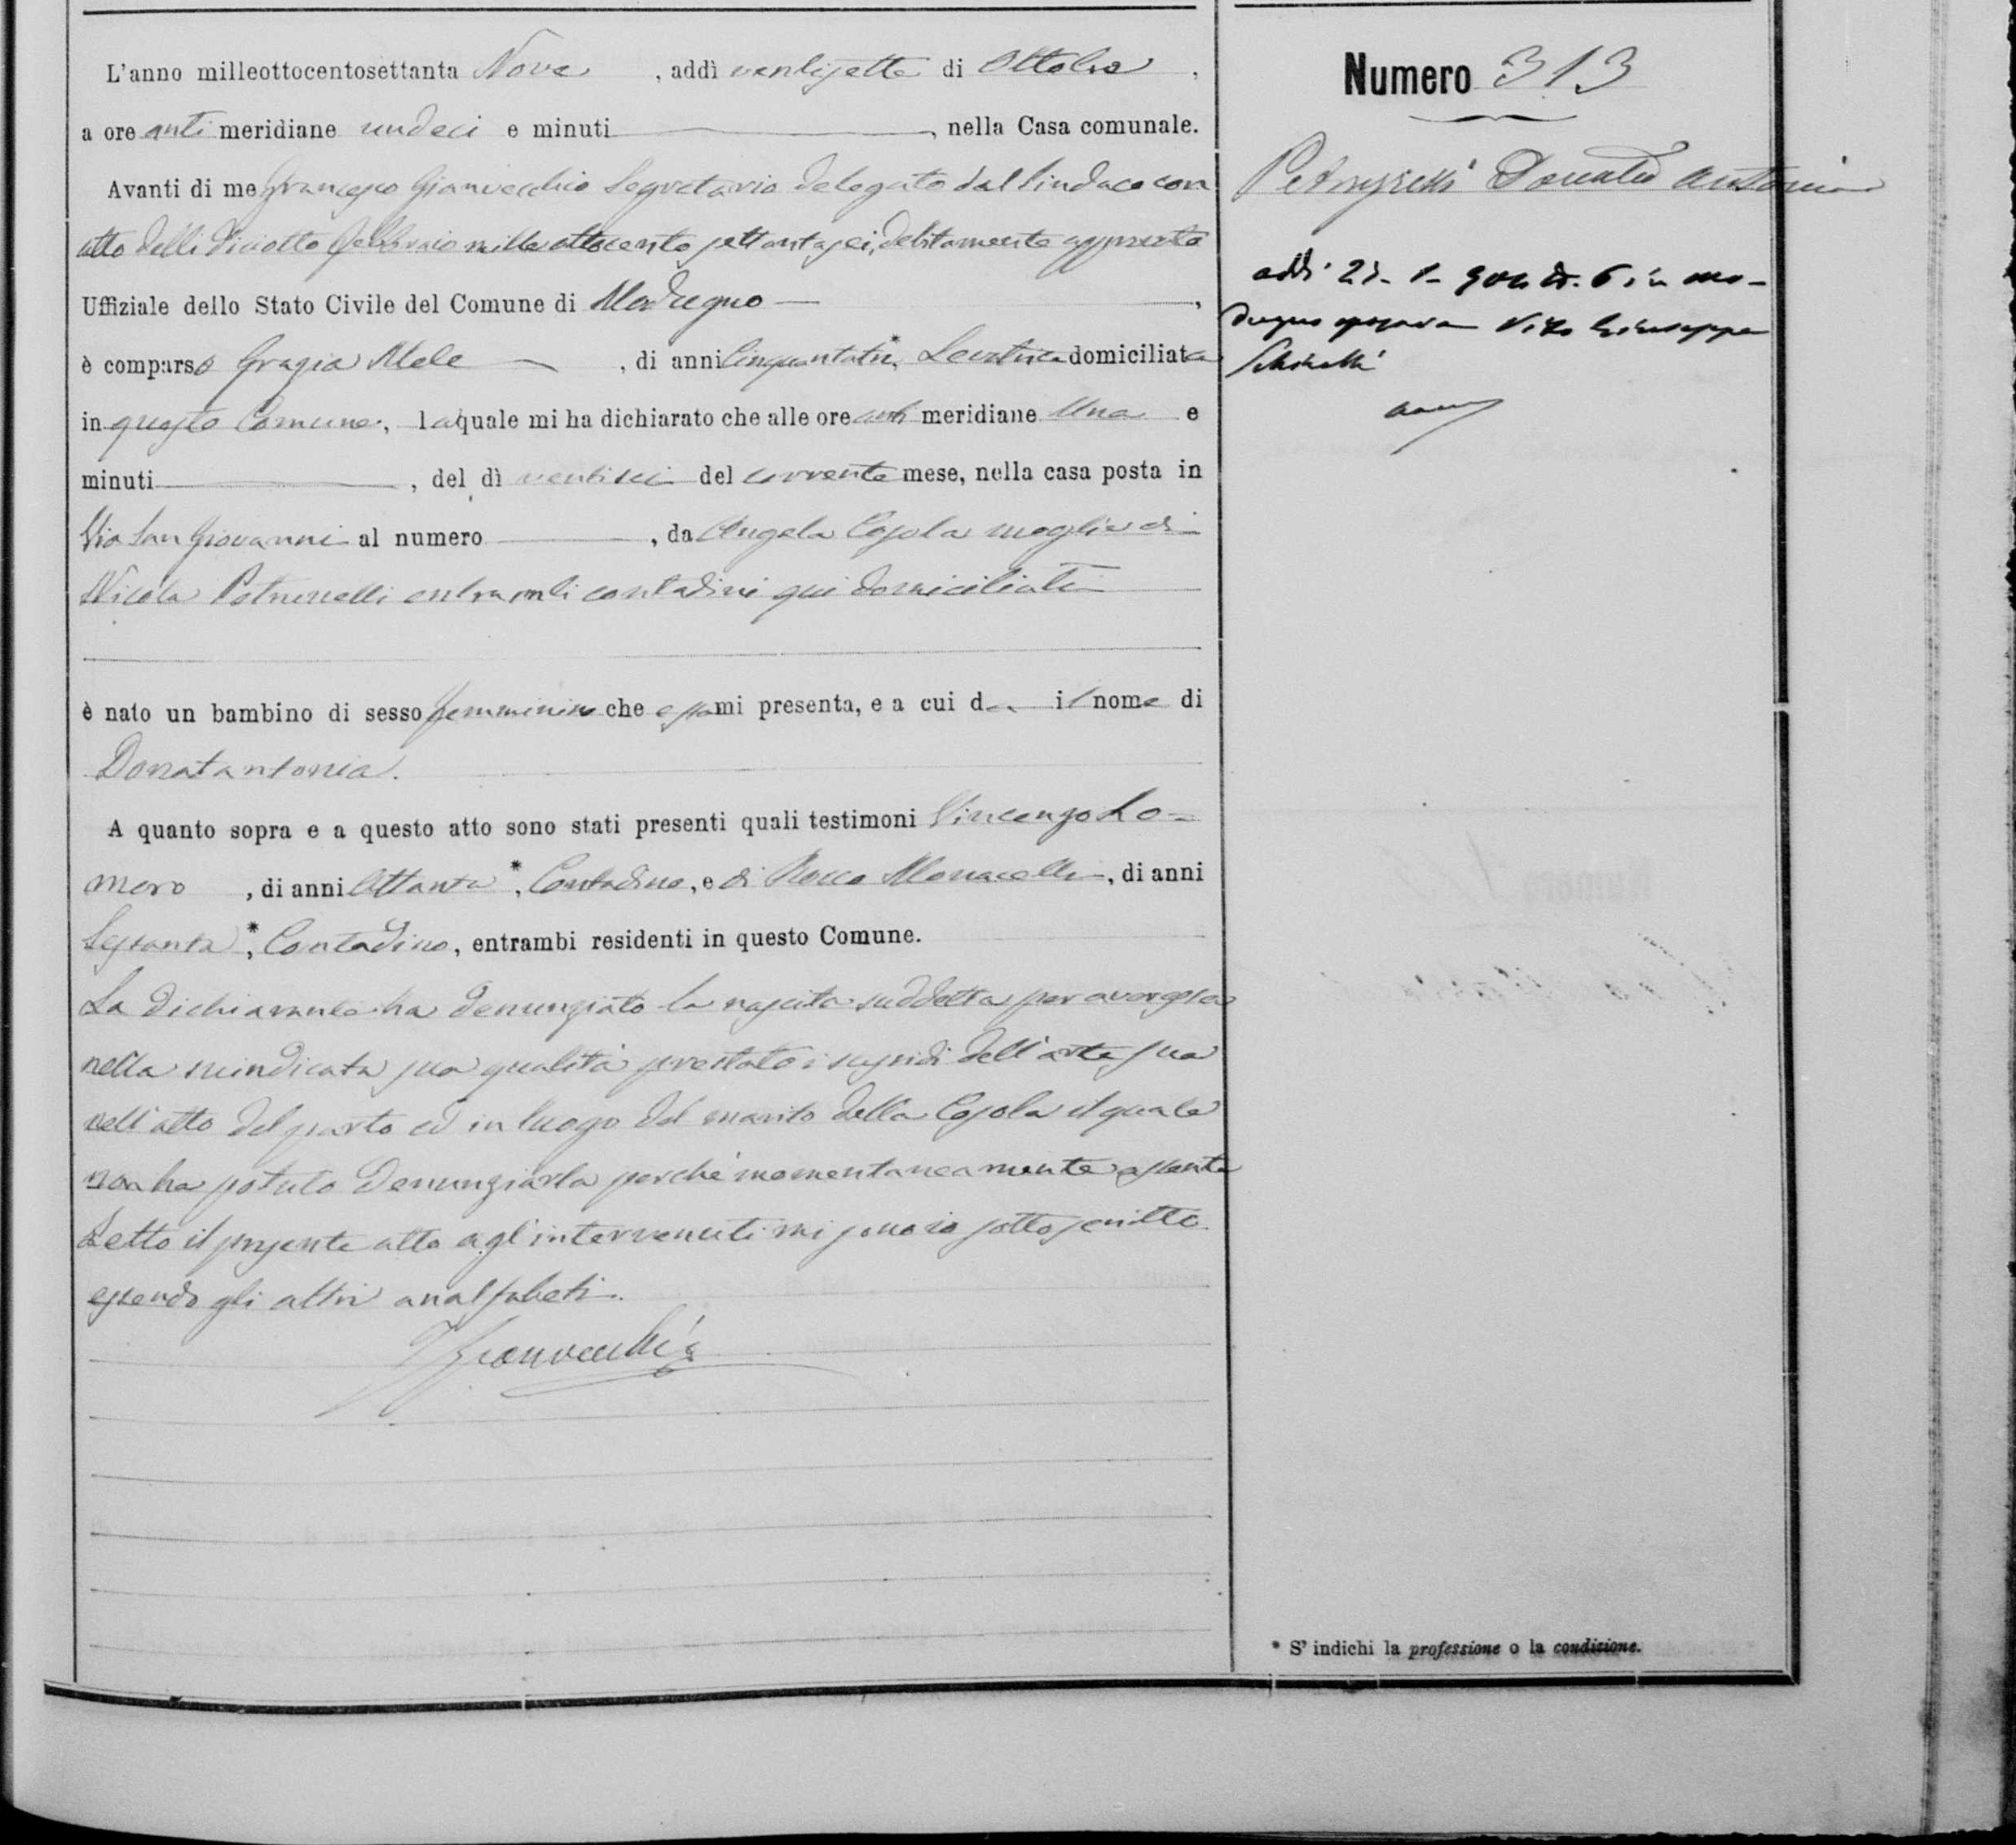 L'anno milleottocentosettanta Nove, addì ventisette di Ottobre,
a ore anti meridiane undeci e minuti, nella Casa comunale.
Avanti di me Francesco Gianvecchio Segretario delegato dal Sindaco con
atto delli diciotto Febbraio milleottocento settantasei, debitamente approvato
Uffiziale dello Stato Civile del Comune di Modugno,
è comparso Grazia Mele, di anni Cinquantatre*, Levatrice domiciliata
in questo Comune, la quale mi ha dichiarato che alle ore anti meridiane Una e
minuti, del dì ventisei del corrente mese, nella casa posta in
Via San Giovanni al numero, da Angela Cosola moglie di
Nicola entrambi contadini qui domiciliati
è nato un bambino di sesso femminino che essa mi presenta, e a cui da il nome di
Donatantonia.
A quanto sopra e a questo atto sono stati presenti quali testimoni Vincenzo Lo=
moro, di anni Ottanta*, Contadino, e di Rocco Monacelli, di anni
Sessanta*, Contadino, entrambi residenti in questo Comune.
La dichiarante ha denunziato la nascita suddetta per aver essa
nella suindicata sua qualità prestato i sussidi dell'arte sua
nell'atto del parto ed in luogo del marito della Cosola il quale
non ha potuto denunziarla perchè momentaneamente assente
Letto il presente atto agl'intervenuti mi sono io sottoscritto
essendo gli altri analfabeti.
Gianvecchio
Numero 313
Donata Antonia
addì in Mo-
dugno sposava Vito Giuseppe
* S' indichi la professione o la condizione.